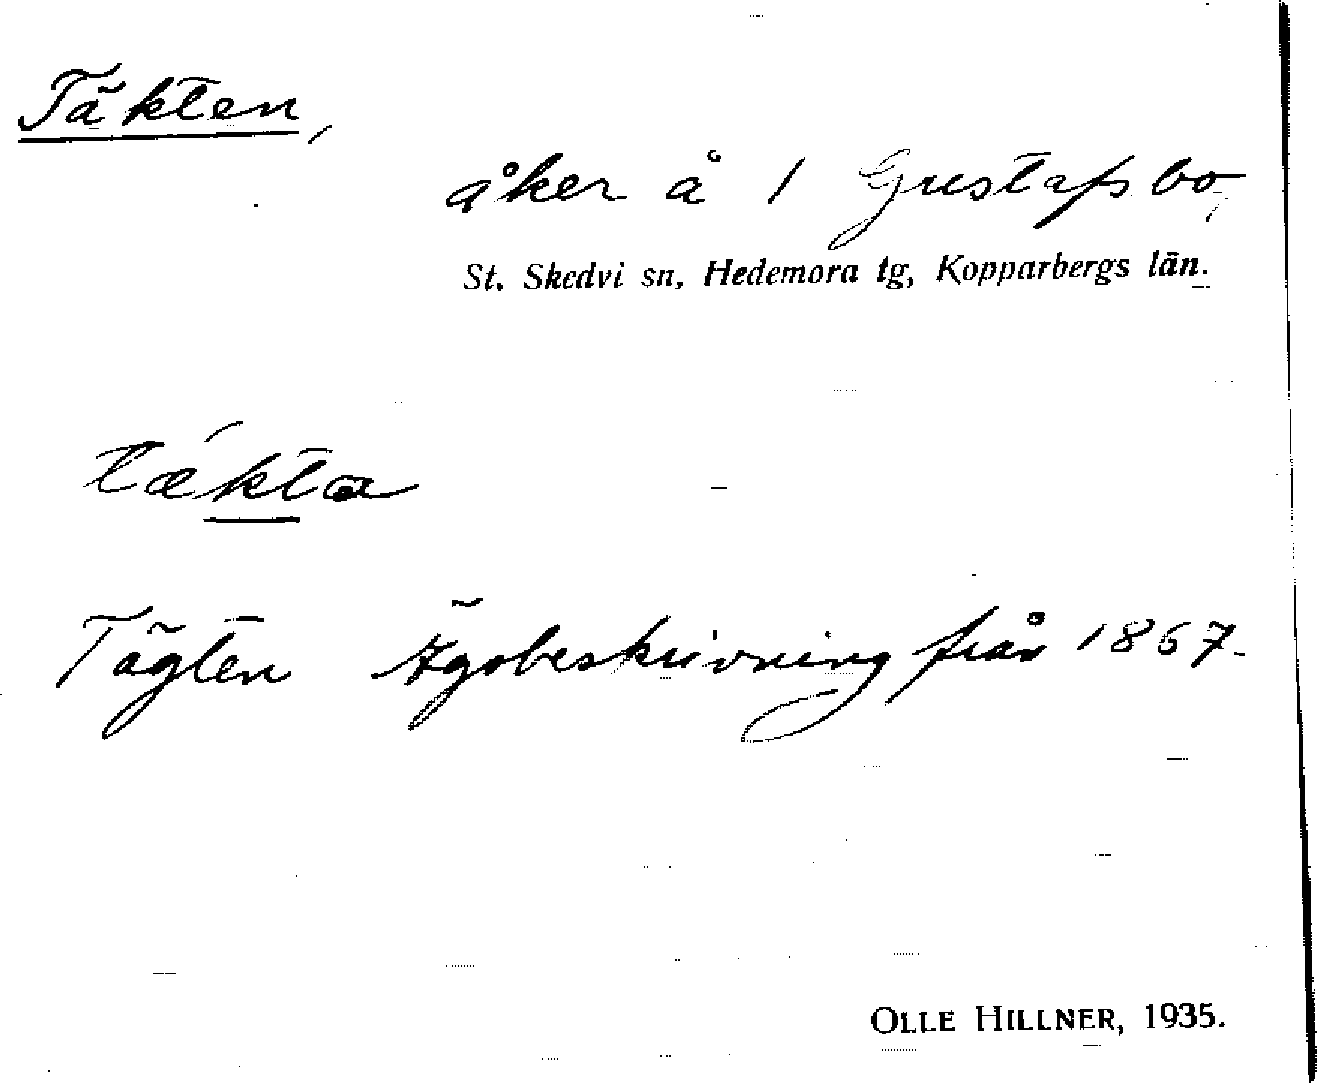 Täkten,
åker å 1 Gustafsbo,
St. Skedvi sn, Hedemora tg, Kopparbergs län.
tæ´kta
Tägten Ägobeskrivning från 1867.
OLLE HILLNER, 1935.